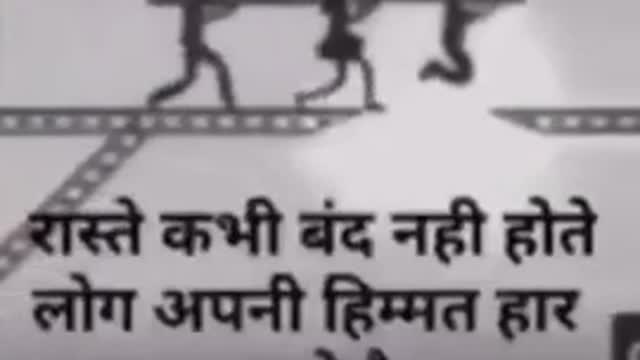 रास्ते कभी बंद नही होते
लोग अपनी हिम्मत हार